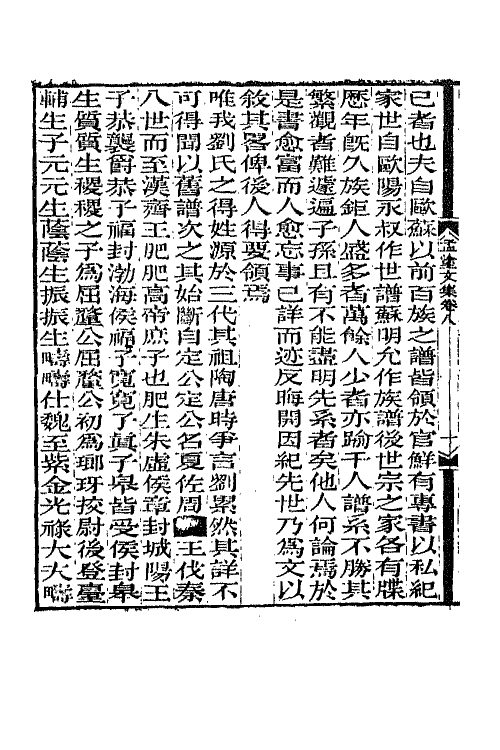 已者也夫自歐蘇以前百族之譜皆領於官鮮有專書以私紀
家世自歐陽永叔作世譜蘇明允作族譜後世宗之家各有牒
歷年既久族鉅人盛多者萬餘人少者亦踰千人譜系不勝其
繁觀者難遽遍子孫且有不能盡明先系者矣他人何論焉於
是書愈富而人愈忘事已詳而迹反晦開因紀先世乃爲文以
敘其畧俾後人得要領焉
唯我劉氏之得姓源於三代其祖陶唐時爭言劉累然其詳不
可得聞以舊譜次之其始斷自定公定公名夏佐周 王伐秦
八世而至漢齊王肥肥高帝庶子也肥生朱虛侯章封城陽王
子恭襲爵恭子福封渤海侯福子寬寬子眞子皋皆受侯封皋
生質質生稷稷之子爲屈氂公屈氂公初爲瑯玡按尉後登臺
輔生子元元生蔭蔭生振振生疇疇仕魏至紫金光祿大夫疇
文集卷八
十